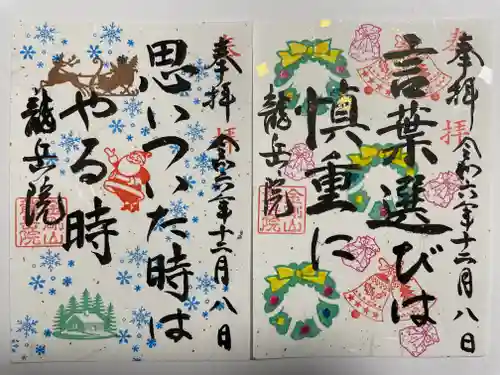 奉拝
言葉選びは
慎重に
龍岳院
令和六年十二月八日
奉拝
思いついた時は
やる時
龍岳院
令和六年十二月八日